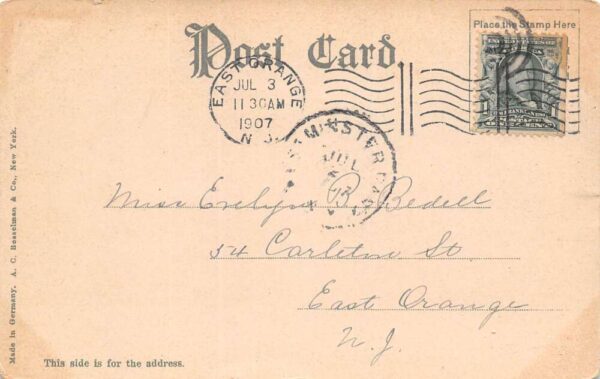 Place the Stamp Here
Post Card.
EAST ORANGE
JUL 3
11 30AM
1907
N.J.
JUL
Miss Evelyn B. Bedell
54 Carleton St.
East Orange
N.J.
This side is for the address.
Made in Germany. A. C. Bosselman & Co., New York.